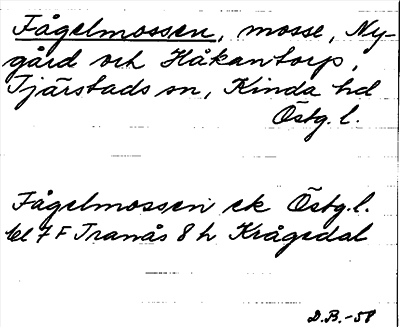 Fågelmossen, mosse, Ny-
gård och Håkantorp,
Tjärstads sn, Kinda hd
Östg. l.
Fågelmossen ek Östg. l.
bl 7 F Tranås 8 h Krågedal
D.B. -58